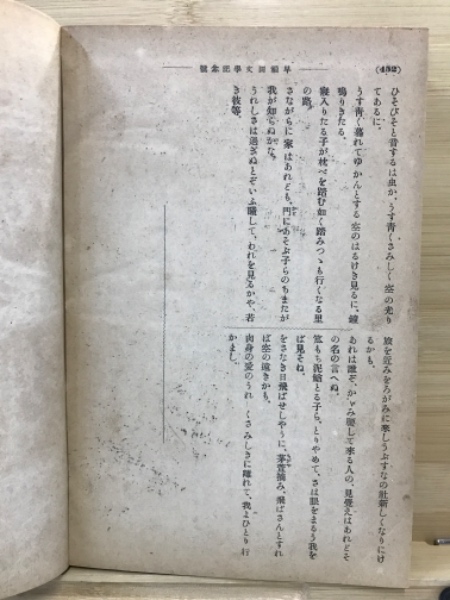 (432)
早稲田文學記念號
ひそひそと音するは虫か、うす靑くさみしく空の光り
てあるに。
うす靑く暮れてゆかんとする空のはるけき見るに、鐘
鳴りきたる。
寢入りたる子が枕べを踏む如く踏みつゝも行くなる里
の路。
さながらに家はあれども、門にあそぶ子らのちまたが
我が知らぬかな。
うれしさは過ぎぬとぞいふ瞳して、われを見るかや、若
き彼等。
旅を近みをろがみに來しうぶすなの社新しくなりにけ
るかも。
あれは誰ぞ、して來る人の、見覺えはあれどそ
の名の言へぬ。
笊もち泥鰌とる子ら、とりやめて、さは眼をまるう我を
ば見そね。
をさなき日飛ばせしやうに、茅萱摘み、飛ばさんとすれ
ば空の遠きかも。
肉身の愛のうれくさみしきに離れて、我よひとり行
かまし。